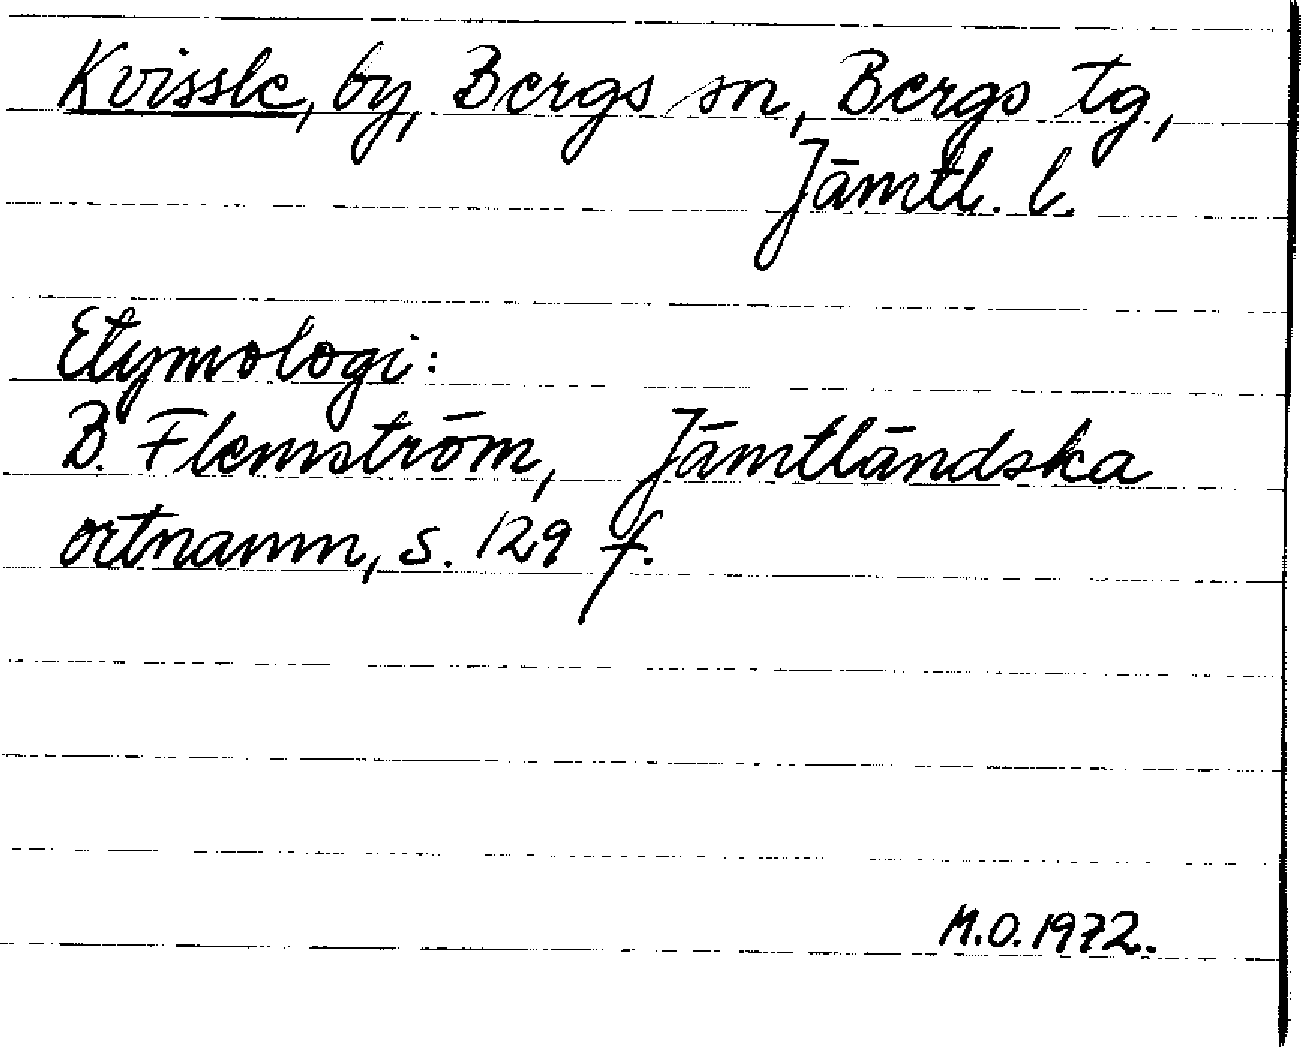 Kvissle, by, Bergs sn, Bergs tg,
Jämtl. l.
Etymologi:
B. Flemström, Jämtländska
ortnamn, s. 129 f.
M.O. 1972.